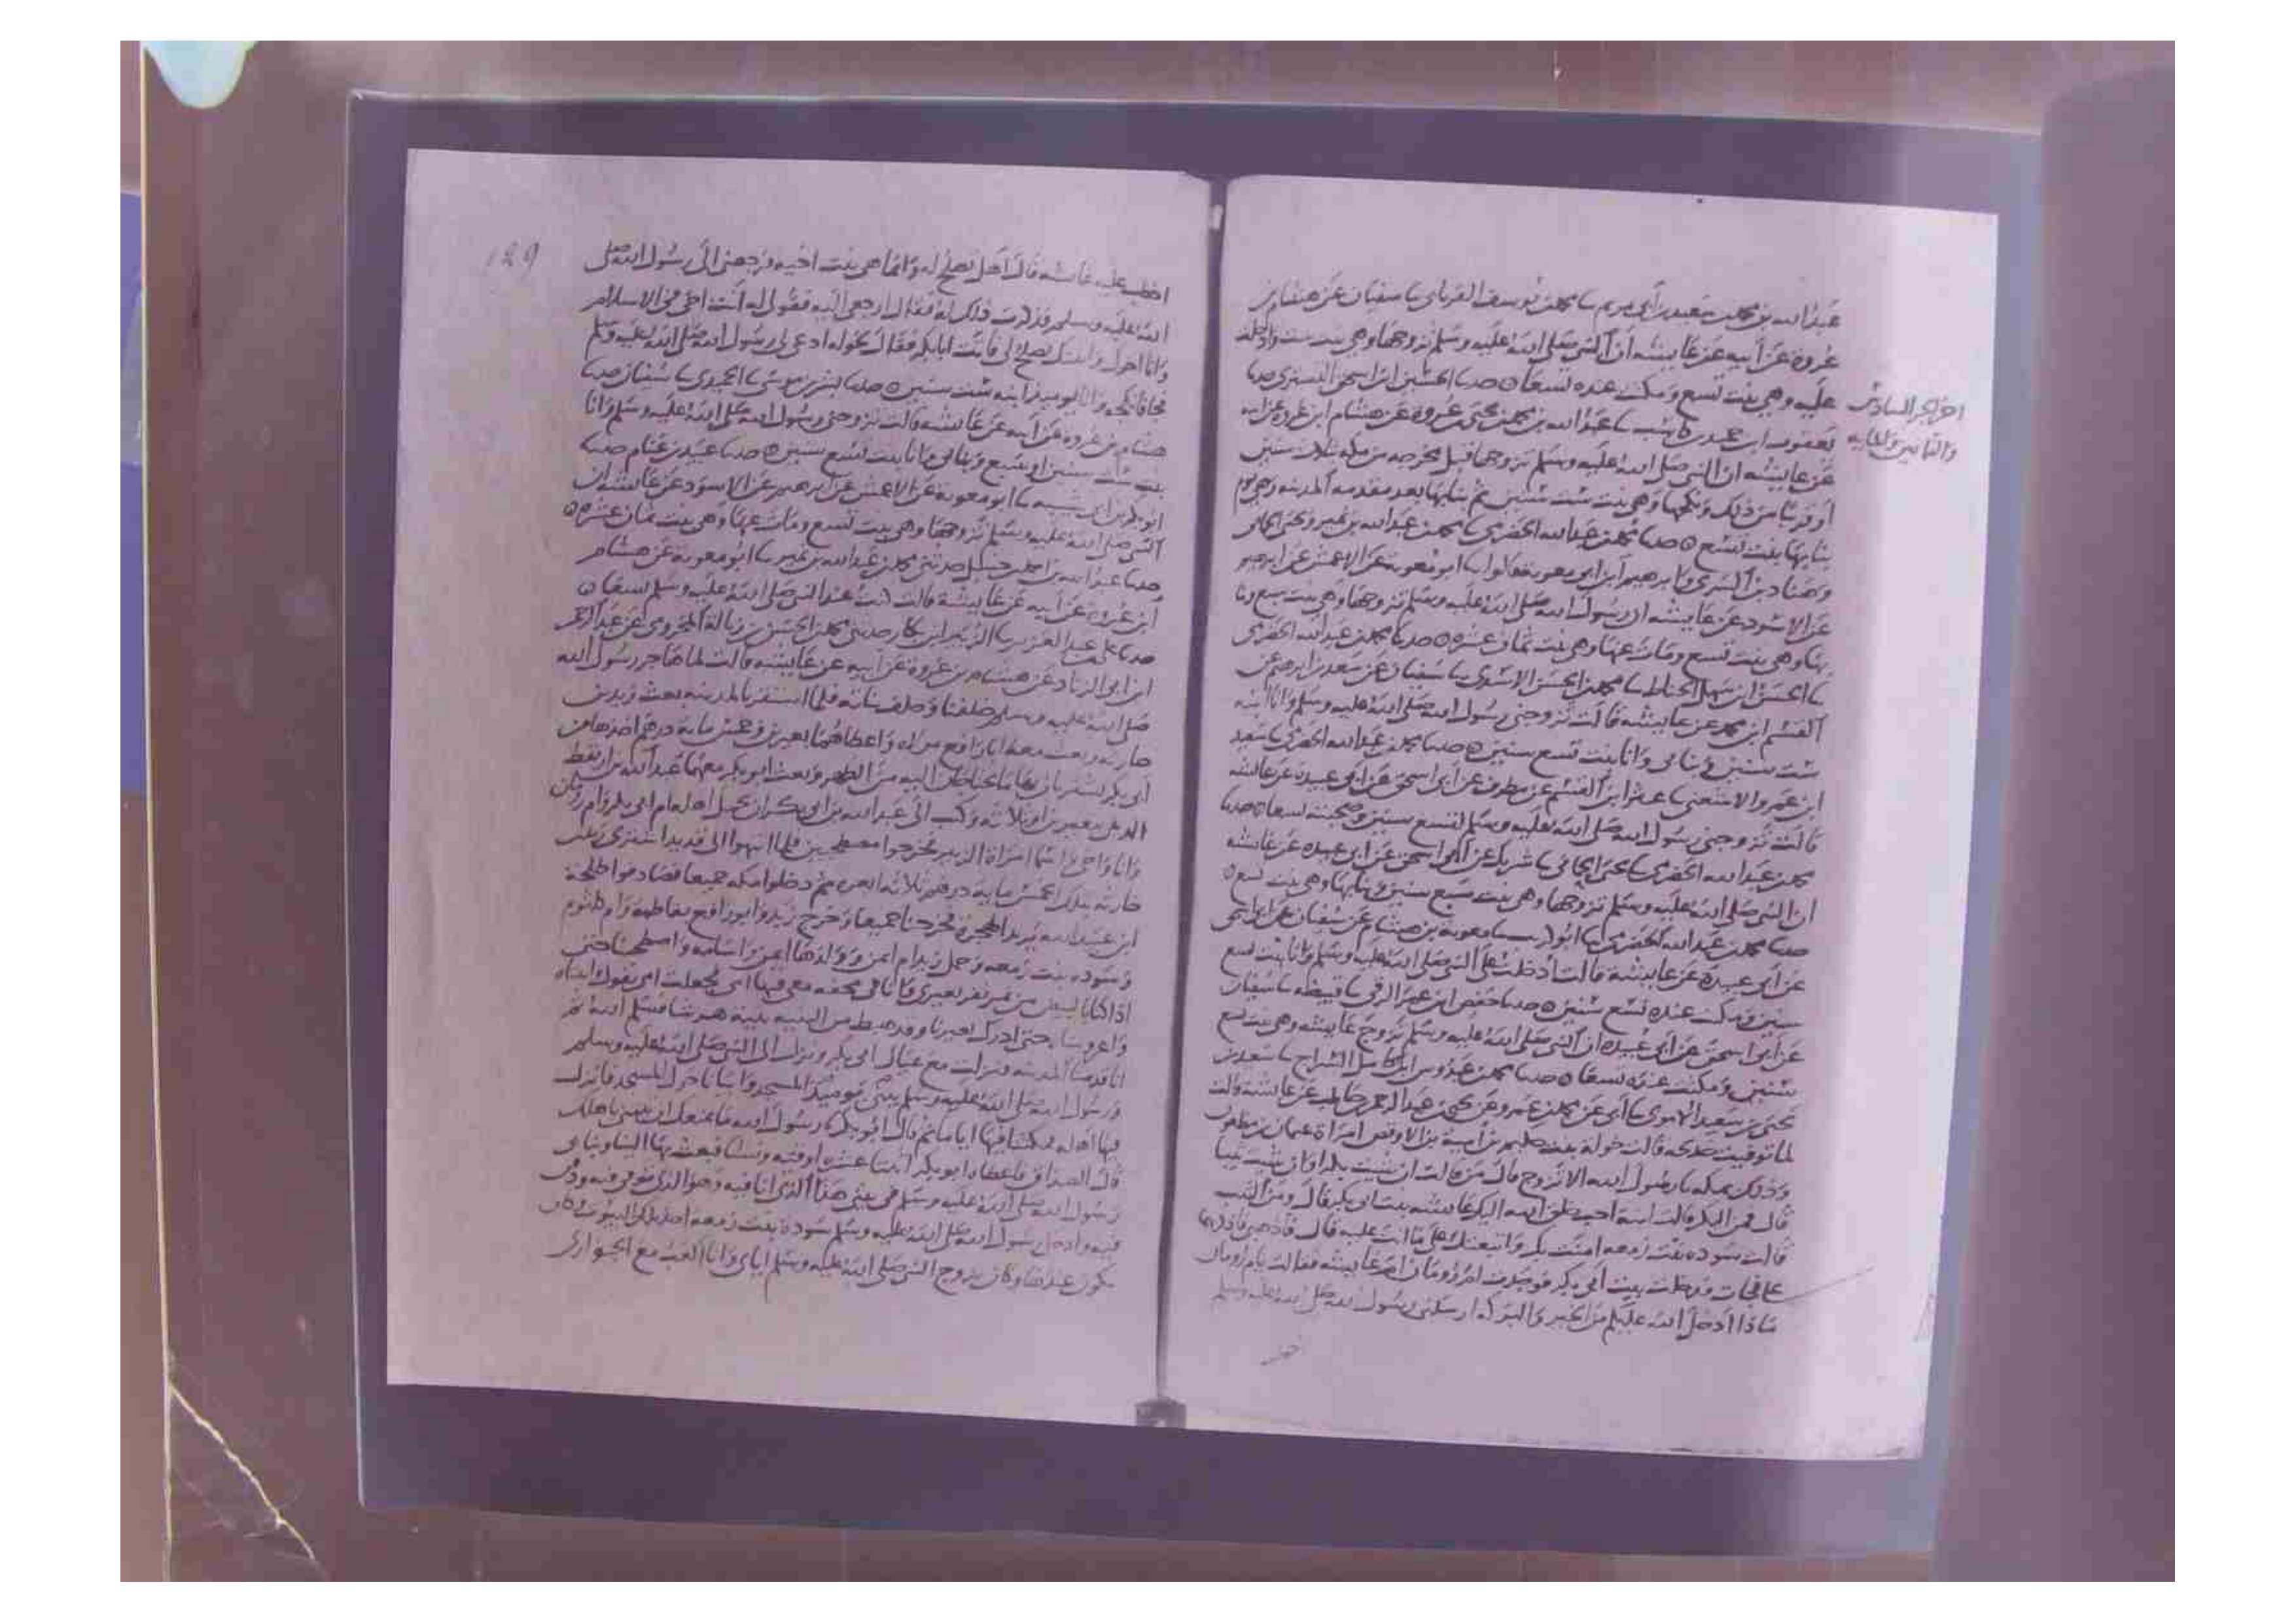 عبد الله بن محمد بن سعيد بن أبي مريم ثنا محمد بن يوسف الفريابي ثنا سفيان عن هشام بن
عروة عن أبيه عن عايشة أن النبي صلى الله عليه وسلم تزوجها وهي بنت ست وادخلت
عليه وهي بنت تسع ومكثت عنده تسعا ه حدثنا الحسين ابن اسحق التستري حدثنا
اخر الجز السادس
والثمانين والمايه
يعقوب ابن حميد بن كاسب ثنا عبد الله بن محمد بن يحيى بن عروة عن هشام ابن عروة عن ابيه
عن عايشة ان النبي صلى الله عليه وسلم تزوجها قبل مخرجه من مكه بثلاث سنين
أو قريبا من ذلك ونكحها وهي بنت ست سنين ثم بنا بها بعد مقدمه المدينه وهي يوم
بنا بها بنت تسع ه حدثنا محمد بن عبد الله الحضرمي ثنا محمد بن عبد الله بن نمير ويحيى الحماني
وهناد بن السري وابرهيم ابن ابي معوية قالوا ثنا ابو معوية عن الاعمش عن ابرهيم
عن الاسود عن عايشه ان رسول الله صلى الله عليه وسلم تزوجها وهي بنت سبع وبنا
بها وهي بنت تسع ومات عنها وهي بنت ثمان عشره ه حدثنا محمد بن عبد الله الحضرمي
ثنا الحسن ابن سهل الحناط ثنا محمد بن الحسن الاسدي ثنا سفيان عن سعد بن ابرهيم عن
القسم ابن محمد عن عايشه قالت تزوجني رسول الله صلى الله عليه وسلم وانا ابنه
ست سنين وبنا بي وانا بنت تسع سنين ه حدثنا محمد بن عبد الله الحضرمي ثنا سعيد
ابن عمرو الاشعثي ثنا عبثر ابن القسم عن مطرف عن ابي اسحق عن ابي عبيدة عن عايشه
قالت تزوجني رسول الله صلى الله عليه وسلم لتسع سنين وصحبته تسعا ه حدثنا
محمد بن عبد الله الحضرمي ثنا يحيى الحماني ثنا شريك عن ابي اسحق عن ابي عبيده عن عايشه
ان النبي صلى الله عليه وسلم تزوجها وهي بنت سبع سنين وبنا بها وهي بنت تسع ه
حدثنا محمد بن عبد الله الحضرمي ثنا ابو كريب ثنا معوية بن هشام عن سفيان عن ابي اسحق
عن أبي عبيدة عن عايشة قالت أدخلت على النبي صلى الله عليه وسلم وانا بنت تسع
سنين ومكثت عنده تسع سنين ه حدثنا حفص ابن عمر الرقي ثنا قبيصه ثنا سفيان
عن أبي اسحق عن أبي عبيده أن النبي صلى الله عليه وسلم تزوج عايشه وهي بنت تسع
سنين ومكثت عنده تسعا ه حدثنا محمد بن عبدوس ابن كامل السراج ثنا سعيد بن
يحيى بن سعيد الاموي ثنا أبي عن محمد بن عمرو عن يحيى بن عبد الرحمن بن حاطب عن عايشه قالت
لما توفيت خديجه قالت خولة بنت حكيم بن أمية بن الاوقص امراة عثمان بن مظعون
وذلك بمكه يا رسول الله الا تزوج قال من قالت ان شيت بكرا وان شيت ثيبا
قال فمن البكر قالت ابنة احب خلق الله اليك عايشه بنت ابي بكر قال ومن الثيب
قالت سوده بنت زمعه امنت بك واتبعتك على ما انت عليه قال فاذهبي فاذكريهما
علي فجات فدخلت بيت أبي بكر فوجدت ام رومان ام عايشه فقالت يام رومان
ماذا ادخل الله عليكم من الخير والبركه ارسلني رسول الله صلى الله عليه وسلم
129
اخطب عليه عايشه قال أهل تصلح له وانما هي بنت اخيه فرجعت الى رسول الله صلى
الله عليه وسلم فذكرت ذلك له فقال ارجعي اليه فقولي له أنت اخي في الاسلام
وانا اخوك وابنتك تصلح لي فاتت ابا بكر فقال لخوله ادعي لي رسول الله صلى الله عليه وسلم
فجا فانكحه وانا يوميذ ابنه ست سنين ه حدثنا بشر بن موسى ثنا الحميدي ثنا سفيان حدثنا
هشام بن عروه عن أبيه عن عايشه قالت تزوجني رسول الله صلى الله عليه وسلم وانا
بنت ست سنين او سبع وبنا بي وانا بنت تسع سنين ه حدثنا عبيد بن غنام حدثنا
ابو بكر بن ابي شيبه ثنا ابو معوية عن الاعمش عن ابرهيم عن الاسود عن عايشه ان
النبي صلى الله عليه وسلم تزوجها وهي بنت تسع ومات عنها وهي بنت ثمان عشره ه
حدثنا عبد الله بن احمد بن حنبل حدثني محمد بن عبد الله بن نمير ثنا ابو معوية عن هشام
ابن عروه عن أبيه عن عايشة قالت كنت عند النبي صلى الله عليه وسلم تسعا ه
حدثنا علي بن عبد العزيز ثنا الزبير ابن بكار حدثني محمد بن الحسن بن زبالة المخزومي عن عبد الرحمن
ابن ابي الزناد عن هشام بن عروة عن ابيه عن عايشه قالت لما هاجر رسول الله
صلى الله عليه وسلم خلفنا وخلف بناته فلما استقر بالمدينه بعث زيد بن
حارثه وبعث معه ابا رافع مولاه واعطاهما بعيرين وخمس مايه درهم اخذها من
أبي بكر يشتريان بها ما يحتاجان اليه من الظهر وبعث ابو بكر معهما عبد الله بن اريقط
الديلي ببعيرين او ثلاثه وكتب الى عبد الله بن ابي بكر ان يحمل اهله ام ابي بكر وام رومان
وانا واختي اسما امراة الزبير فخرجوا مصطحبين فلما انتهوا الى قديد اشترى زيد بن
حارثه بتلك الخمس مايه درهم ثلاثه ابعره ثم دخلوا مكه جميعا فصادفوا طلحة
ابن عبيد الله يريد الهجرة فخرجنا جميعا وخرج زيد وابو رافع بفاطمه وام كلثوم
وسوده بنت زمعه وحمل زيد ام ايمن وولدها ايمن واسامه واصطحبنا حتى
اذا كنا بالبيض من تمر نفر بعيري وانا في محفه معي فيها امي فجعلت امي تقول وابنتاه
واعروساه حتى ادرك بعيرنا وقد هبط من الثنيه ثنية هرشا فسلم الله ثم
انا قدمنا المدينه فنزلت مع عيال ابي بكر ونزل الى النبي صلى الله عليه وسلم
ورسول الله صلى الله عليه وسلم يبني يوميذ المسجد وابياتا حول المسجد فانزل
فيها اهله ومكثنا اياما ثم قال ابو بكر يا رسول الله ما يمنعك ان تبني باهلك
قال الصداق فاعطاه ابو بكر اثنتا عشره اوقيه ونشا فبعث بها الينا وبنا بي
رسول الله صلى الله عليه وسلم في بيتي هذا الذي انا فيه وهو الذي توفي فيه ودفن
فيه وادخل رسول الله صلى الله عليه وسلم سودة بنت زمعه احد تلك البيوت وكان
يكون عندها وكان تزوج النبي صلى الله عليه وسلم اياي وانا العب مع الجواري